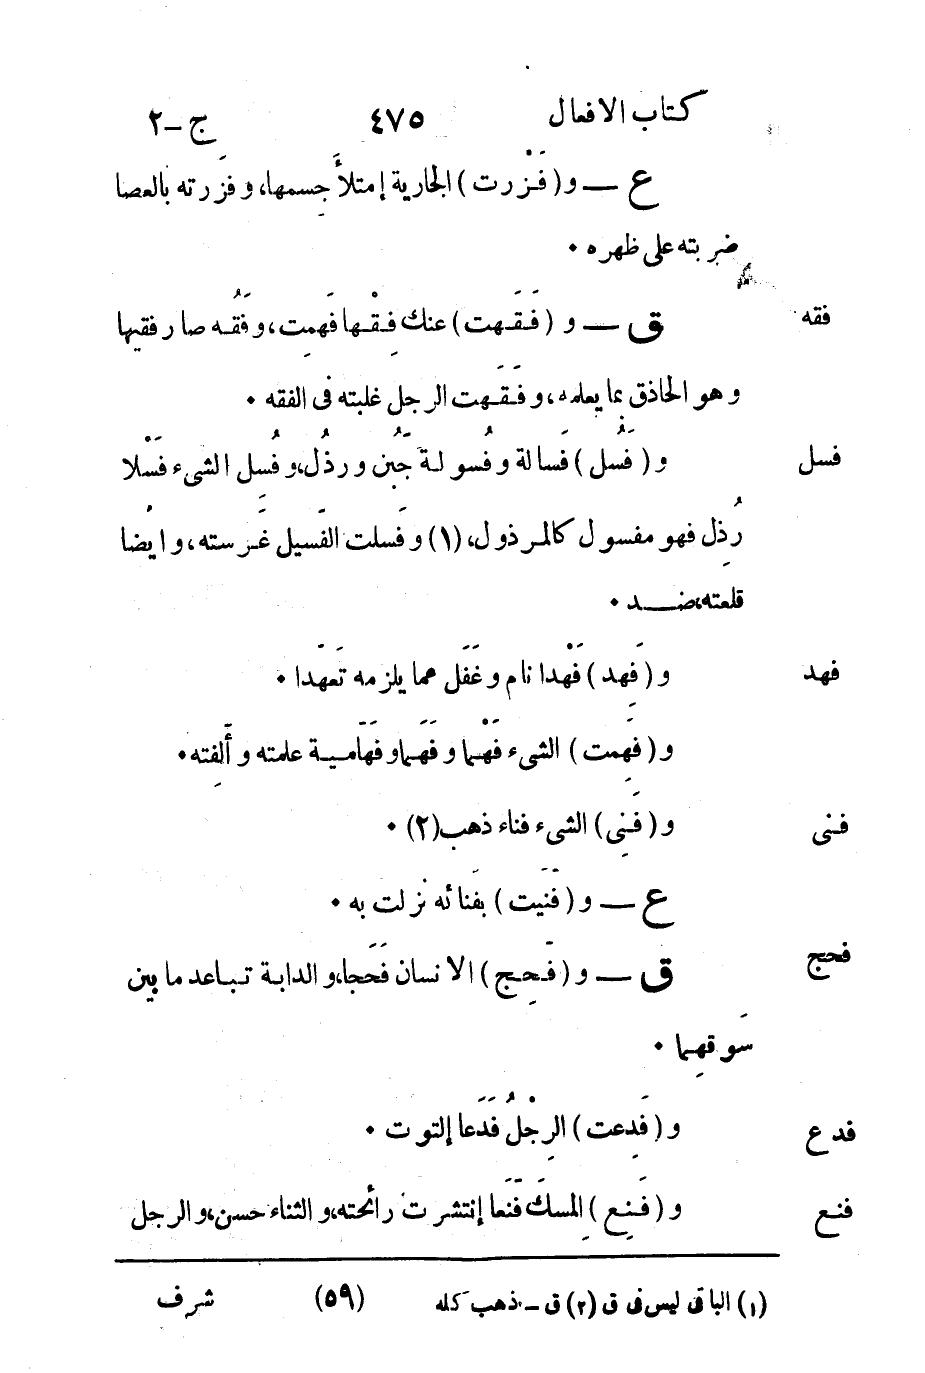 كتاب الافعال ٤٧٥ ج-٢
ع — و (فَزْرت) الجارية إمتلأَ جِسمها، وفَزرته بالعصا
ضربته على ظهره •
فقه ق — و (فَقَهت) عنك فِقْها فَهِمت، وفَقُه صار فقيها
وهو الحاذق بما يعلمه، وفَقَهت الرجل غلبته فى الفقه •
فسل و (فَسُل) فَسالة وفُسولة جَبُن ورذُل، وفُسل الشىء فَسْلا
رُذِل فهو مفسول كالمرذول، (١) وفَسلت الفَسيل غَرسته، وايْضا
قلعته، ضد •
فهد و (فَهِد) فَهْدا نام وغَفَل عما يلزمه تَعهّدا •
و (فَهِمت) الشىء فَهْما وفَهَما وفَهّامية علمته وأَلِفته •
فنى و (فَنِى) الشىء فناء ذهب (٢) •
ع — و (فَنَيت) بفَنائه نزلت به •
فحج ق — و (فَحِج) الانسان فَحَجا، والدابة تباعد ما بين
سَوقهِما •
فدع و (فَدِعت) الرِجْلُ فَدَعا إلتوت •
فنع و (فَنِع) المِسك فَنَعا إنتشرت رائحته، والثناء حسن، والرجل
(١) الباقى ليس فى ق (٢) ق - ذهب كله (٥٩) شرف